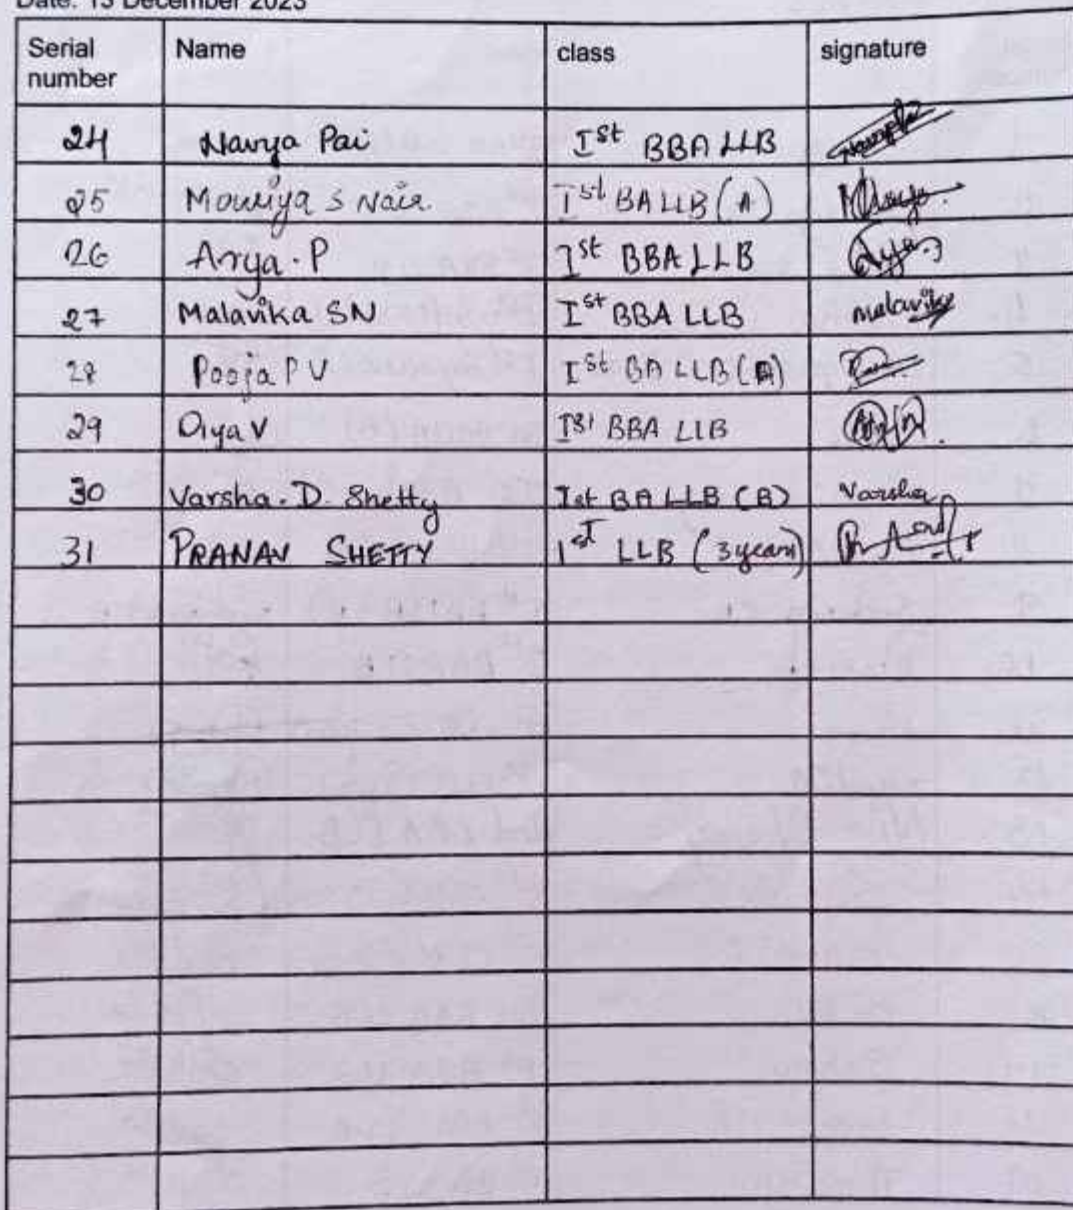 Date: 13 December 2023
Serial number Name class signature
24 Navya Pai Ist BBA LLB
25 Mouriya S Nair Ist BA LLB (A)
26 Arya. P Ist BBA LLB
27 Malavika SN Ist BBA LLB malavika
28 Pooja P V Ist BA LLB (A)
29 Diya V Ist BBA LLB
30 Varsha. D. Shetty Ist BA LLB (B) Varsha
31 PRANAV SHETTY Ist LLB (3 years)